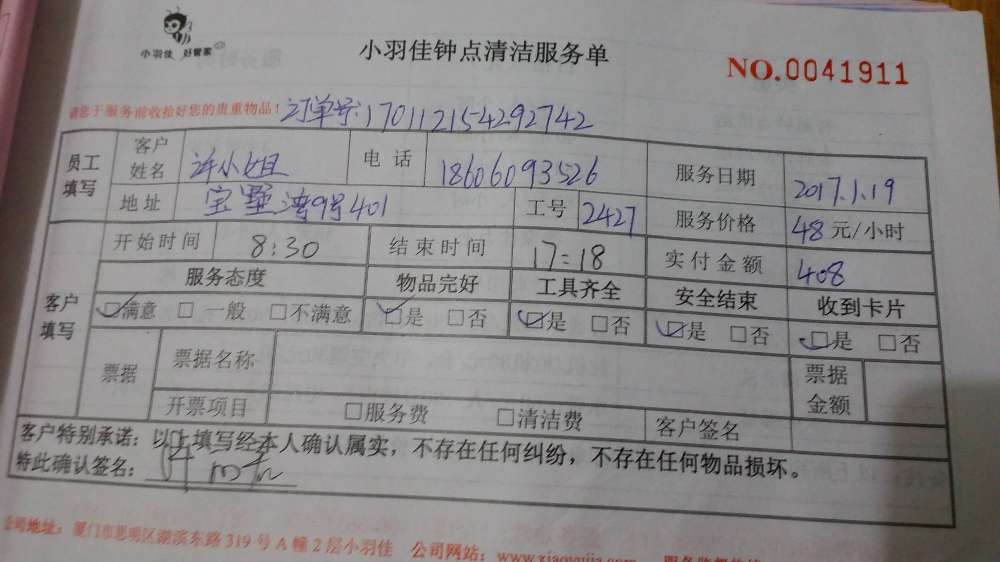 小羽佳 好管家
小羽佳钟点清洁服务单
NO.0041911
请您于服务前收拾好您的贵重物品！订单号:170112154292742
员工填写 客户姓名 许小姐 电话 18606093526 服务日期 2017.1.19
地址 宝墅湾9号401 工号 2427 服务价格 48元/小时
客户填写 开始时间 8:30 结束时间 17:18 实付金额 408
服务态度 物品完好 工具齐全 安全结束 收到卡片
☑满意 □一般 □不满意 ☑是 □否 ☑是 □否 ☑是 □否 ☑是 □否
票据 票据名称 票据金额
开票项目 □服务费 □清洁费 客户签名
客户特别承诺：以上填写经本人确认属实，不存在任何纠纷，不存在任何物品损坏。
特此确认签名：
公司地址：厦门市思明区湖滨东路319号A幢2层小羽佳 公司网站：www.xiaoyujia.com